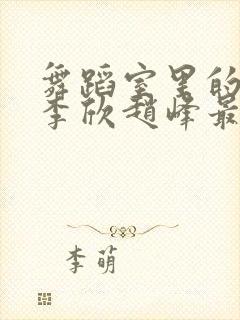 舞蹈室里的
李欣赵峰最
李萌